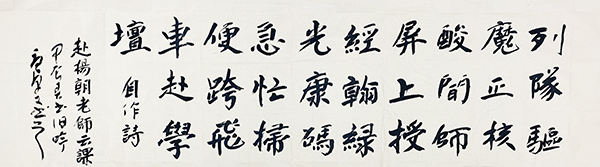 列隊驅
魔正核
酸間師
屏上授
經翰緑
光康碼
急忙掃
便跨飛
車赴學
壇自作詩
赴楊朝老師云課
甲辰書旧吟